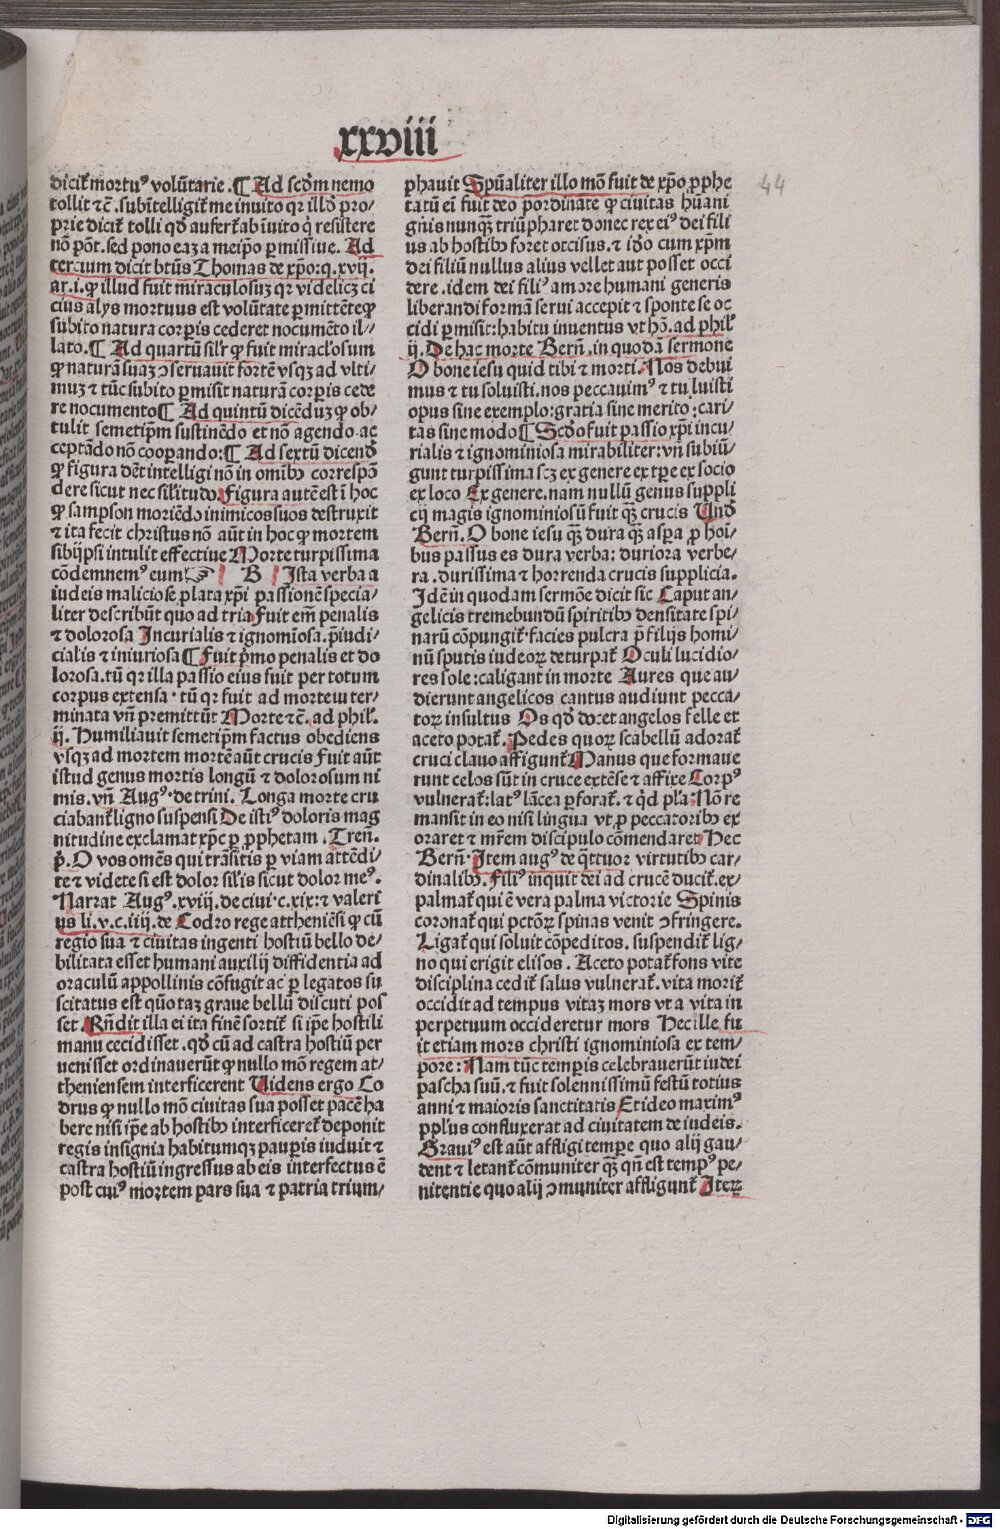 xxviii
44
dicit᷑ mortuꝰ volūtarie .¶ Ad scd̄m nemo
tollit ⁊c̄ .subītelligit᷑ me inuito qr illd̄ pro⸗
prie dicit᷑ tolli qd̄ aufert᷑ ab īuito q̇ resistere
nō pōt. sed pono eaꝫ a meip̄o ꝑmissiue. Ad
tercium dicit bt̄us Thomas de xp̄o:q.xvij.
ar.i.ꝙ illud fuit miraculosuꝫ qr videlicꝫ ci
cius alys mortuus est volūtate ꝑmittēteꝙ
subito natura corꝑis cederet nocumēto il⸗
lato.¶ Ad quartū sil'r ꝙ fuit miracl'osum
ꝙ naturā suaꝫ ↄseruauit fortē vsqꝫ ad vlti⸗
muꝫ ⁊ tūc subito ꝑmisit naturā corꝑis cede
re nocumento¶ Ad quintū dicēduꝫ ꝙ ob⸗
tulit semetip̄m sustinēdo et nō agendo.ac
ceptādo nō cooꝑando:¶ Ad sextū dicend̄
ꝙ figura dēt intelligi nō in omībꝫ correspō
dere sicut nec sil'itudo. Figura autē est ī hoc
ꝙ sampson moriēdo inimicos suos destruxit
⁊ ita fecit christus nō aūt in hoc ꝙ mortem
sibijpsi intulit effectiue Morte turpissima
cōdemnemꝰ eum☞ B Ista verba a
iudeis maliciose ꝓlata xp̄i passionē specia⸗
liter describūt quo ad tria.Fuit em̄ penalis
⁊ dolorosa Incurialis ⁊ ignomīosa.p̄iudi⸗
cialis ⁊ iniuriosa¶ Fuit p̄mo penalis et do
lorosa.tū qr illa passio eius fuit per totum
corpus extensa · tū qr fuit ad mortem ter⸗
minata vn̄ premittūt Morte ⁊c̄. ad phil'.
ij. Humiliauit semetip̄m factus obediens
vsqꝫ ad mortem mortē aūt crucis Fuit aūt
istud genus mortis longū ⁊ dolorosum ni
mis. vn̄ Augꝰ. de trini. Longa morte cru
ciabant᷑ ligno suspensi De istiꝰ doloris mag
nitudine exclamat xp̄c ꝑ ꝓphetam. Tren̄.
p̄. O vos omēs qui trāsitis ꝑ viam attēdi⸗
te ⁊ videte si est dolor sil'is sicut dolor meꝰ.
Narrat Augꝰ.xviij.de ciui·c.xix:⁊ valeri
us li.v.c.iiij.de Codro rege attheniēsi ꝙ cū
regio sua ⁊ ciuitas ingenti hostiū bello de⸗
bilitata esset humani auxilij diffidentia ad
oraculū appollinis cōfugit ac ꝑ legatos su
scitatus est quō taꝫ graue bellū discuti pos
set. Rn̄dit illa ei ita finē sortit᷑ si ip̄e hostili
manu cecidisset .qd̄ cū ad castra hostiū per
uenisset ordinauerūt ꝙ nullo mō regem at⸗
theniensem interficerent Uidens ergo Co
drus ꝙ nullo mō ciuitas sua posset pacē ha
bere nisi ip̄e ab hostibꝫ interficeret᷑ deponit
regis insignia habitumqꝫ pauꝑis induit ⁊
castra hostiū ingressus ab eis interfectus ē
post cuiꝰ mortem pars sua ⁊ patria trium⸗
phauit Spūaliter illo mō fuit de xp̄o ꝓphe
tatū ei fuit deo p̄ordinate ꝙ ciuitas hūani
gn̄is nunqꝫ̄ triūpharet donec rex eiꝰ dei fili
us ab hostibꝫ foret occisus.⁊ id̄o cum xp̄m
dei filiū nullus alius vellet aut posset occi
dere .idem dei filiꝰ amore humani generis
liberandi formā serui accepit ⁊ sponte se oc
cidi ꝑmisit:habitu inuentus vt hō.ad phil'
ij. De hac morte Bern̄.in quodā sermone
O bone iesu quid tibi ⁊ morti. Nos debui
mus ⁊ tu soluisti.nos peccauimꝰ ⁊ tu luisti
opus sine exemplo:gratia sine merito:cari⸗
tas sine modo¶ Scd̄o fuit passio xp̄i incu⸗
rialis ⁊ ignominiosa mirabiliter:vn̄ subiū⸗
gunt turpissima scꝫ ex genere ex tꝑe ex socio
ex loco Ex genere.nam nullū genus suppli
cij magis ignominiosū fuit qꝫ̄ crucis Und̄
Bern̄.O bone iesu qꝫ̄ dura qꝫ̄ asꝑa ꝓ hoī⸗
bus passus es dura verba: duriora verbe⸗
ra .durissima ⁊ horrenda crucis supplicia.
Idē in quodam sermōe dicit sic Caput an⸗
gelicis tremebundū spiritibꝫ densitate spi⸗
narū cōpungit᷑·facies pulcra p̄ filijs homi⸗
nū sputis iudeoꝝ deturpat᷑ Oculi lucidio⸗
res sole:caligant in morte Aures que au⸗
dierunt angelicos cantus audiunt pecca⸗
toꝝ insultus Os qd̄ docet angelos felle et
aceto potat᷑. Pedes quoꝝ scabellū adorat᷑
cruci clauo affigunt᷑ Manus que formaue
runt celos sūt in cruce extēse ⁊ affixe Corpꝰ
vulnerat᷑:latꝰ lācea ꝑforat᷑. ⁊ q̇d pl'a.Nō re
mansit in eo nisi lingua vt ꝓ peccatoribꝫ ex
oraret ⁊ mr̄em discipulo cōmendaret Hec
Bern̄· Item augꝰ de q̄ttuor virtutibꝫ car⸗
dinalibꝫ. Filiꝰ inquit dei ad crucē ducit᷑.ex⸗
palmat᷑ qui ē vera palma victorie Spinis
coronat᷑ qui pctōꝝ spinas venit ↄfringere.
Ligat᷑ qui soluit cōpeditos. suspendit᷑ lig⸗
no qui erigit elisos . Aceto potat᷑ fons vite
disciplina cedit᷑ salus vulnerat᷑. vita morit᷑
occidit ad tempus vitaꝫ mors vt a vita in
perpetuum occideretur mors Hec ille fu
it etiam mors christi ignominiosa ex tem⸗
pore: Nam tūc temꝑis celebrauerūt iudei
pascha suū.⁊ fuit solennissimū festū totius
anni ⁊ maioris sanctitatis Et ideo maximꝰ
ppl'us confluxerat ad ciuitatem de iudeis.
Grauiꝰ est aūt affligi temꝑe quo alij gau⸗
dent ⁊ letant᷑ cōmuniter qꝫ̄ qn̄ est tempꝰ pe⸗
nitentie quo alij ↄmuniter affligunt᷑ Iteꝝ
Digitalisierung gefördert durch die Deutsche Forschungsgemeinschaft - DFG